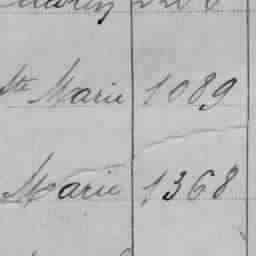 Ste Marie 1089
Marie 1368